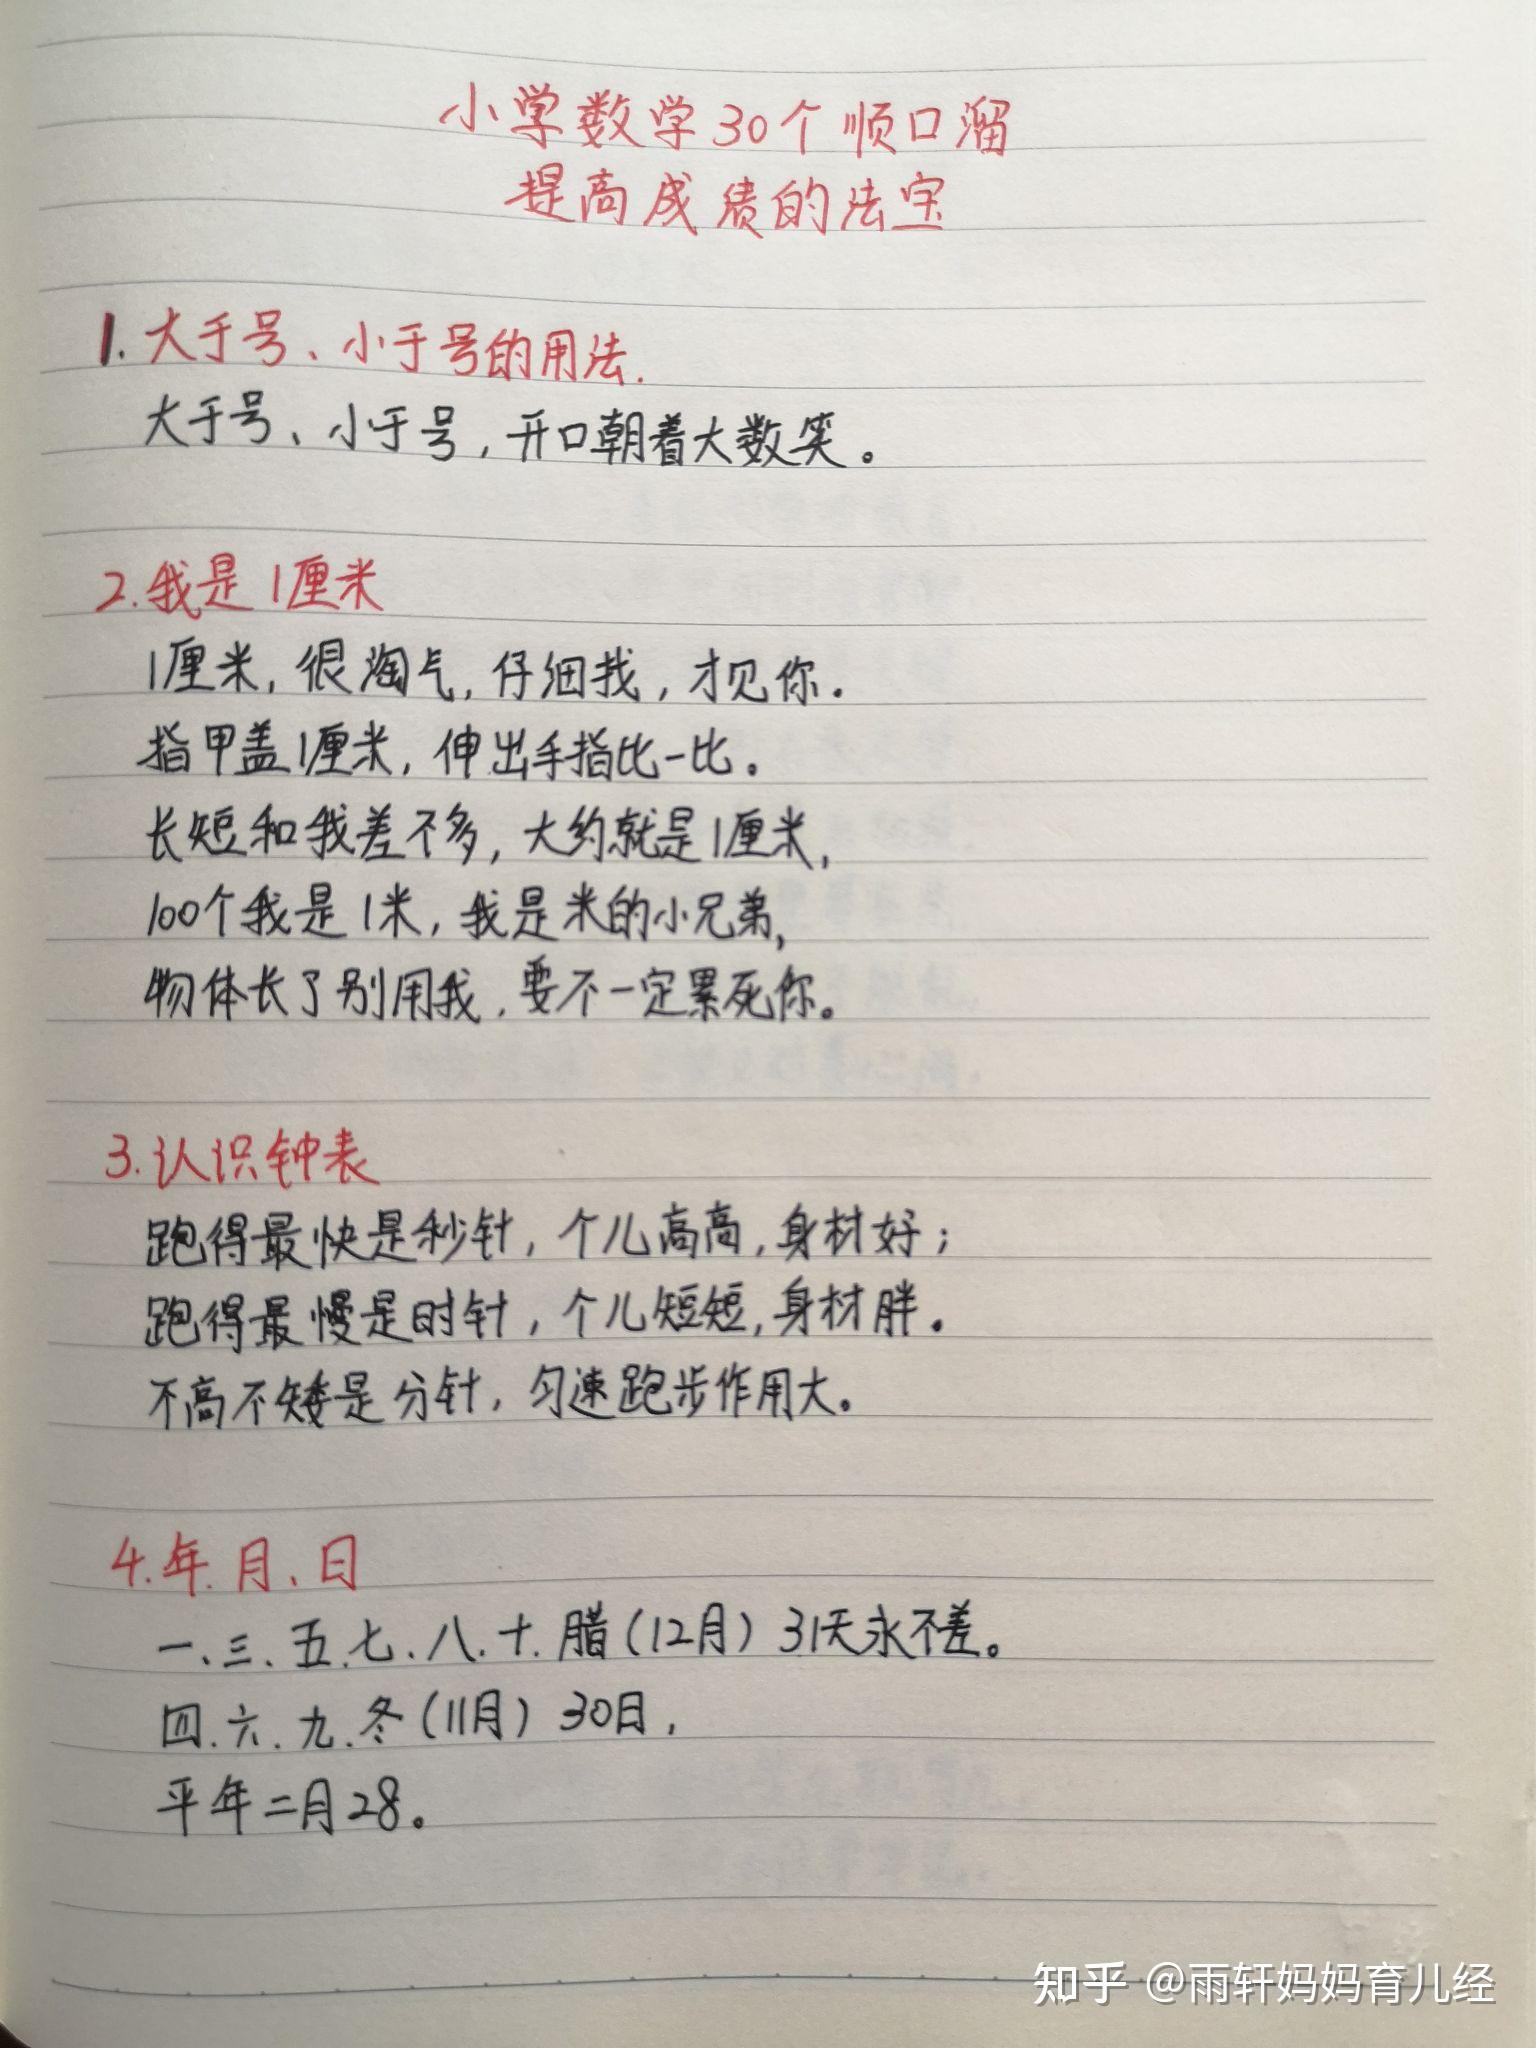 小学数学30个顺口溜
提高成绩的法宝
1.大于号、小于号的用法.
大于号、小于号,开口朝着大数笑。
2.我是1厘米
1厘米,很淘气,仔细找,才见你.
指甲盖1厘米,伸出手指比一比。
长短和我差不多,大约就是1厘米,
100个我是1米,我是米的小兄弟,
物体长了别用我,要不一定累死你。
3.认识钟表
跑得最快是秒针,个儿高高,身材好;
跑得最慢是时针,个儿短短,身材胖。
不高不矮是分针,匀速跑步作用大。
4.年.月、日
一、三、五.七、八.十.腊(12月)31天永不差。
四.六、九.冬(11月)30日,
平年二月28。
知乎 @雨轩妈妈育儿经